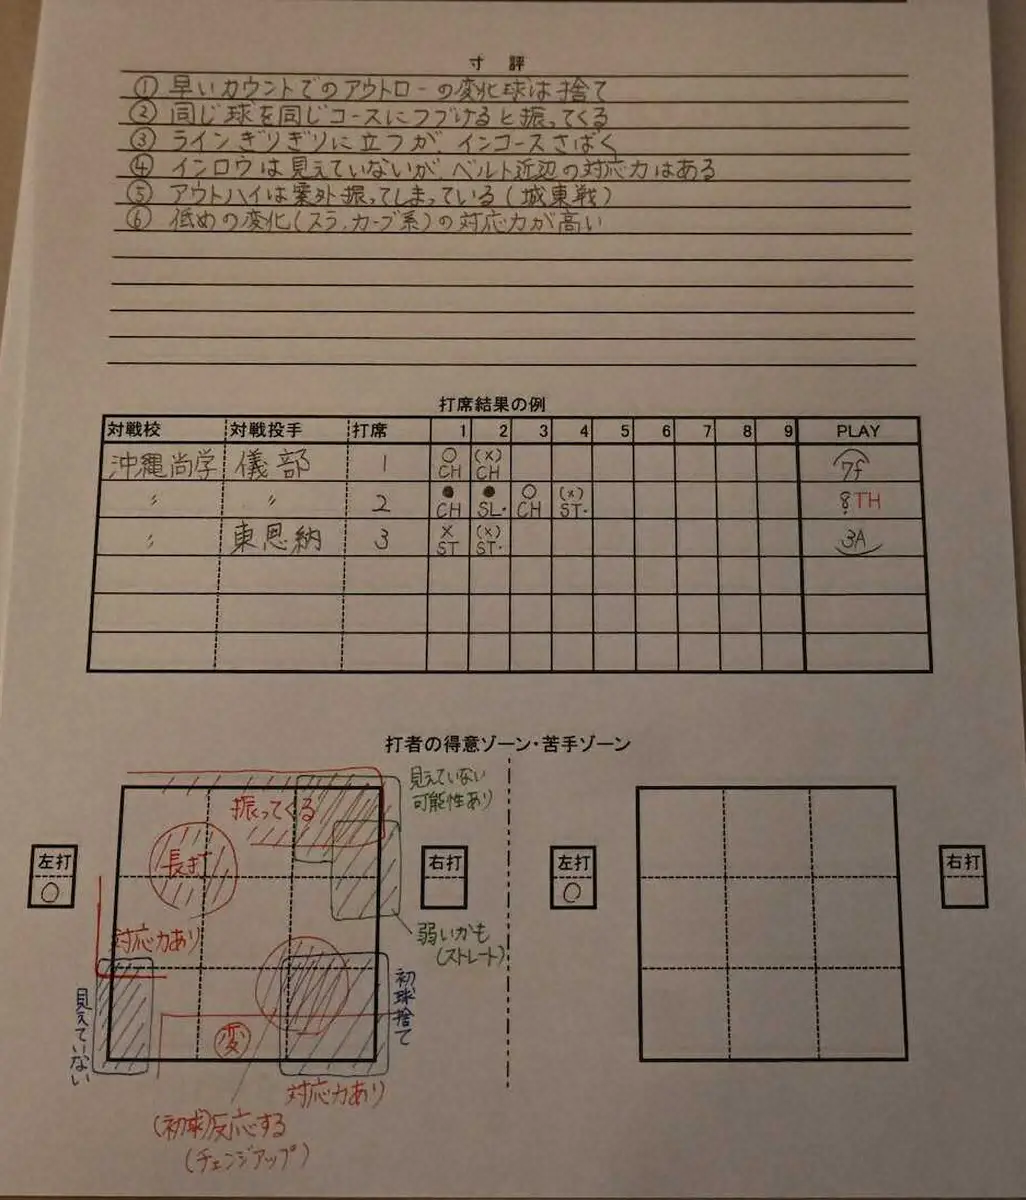 寸 評
① 早いカウントでのアウトローの変化球は捨て
② 同じ球を同じコースにつづけると振ってくる
③ ラインぎりぎりに立つが、インコースさばく
④ インロウは見えていないが、ベルト近辺の対応力はある
⑤ アウトハイは案外振ってしまっている(城東戦)
⑥ 低めの変化(スラ、カーブ系)の対応力が高い
打席結果の例
対戦校 対戦投手 打席 1 2 3 4 5 6 7 8 9 PLAY
沖縄尚学 儀部 1 ○ CH (×) CH 7f
〃 〃 2 ● CH ● SL・ ○ CH (×) ST・ 8 TH
〃 東恩納 3 × ST (×) ST・ 3A
打者の得意ゾーン・苦手ゾーン
見えていない
可能性あり
振ってくる
長打
左打
○
右打
左打
○
右打
対応力あり
弱いかも
(ストレート)
見えていない
初球捨て
変
対応力あり
(初球)反応する
(チェンジアップ)